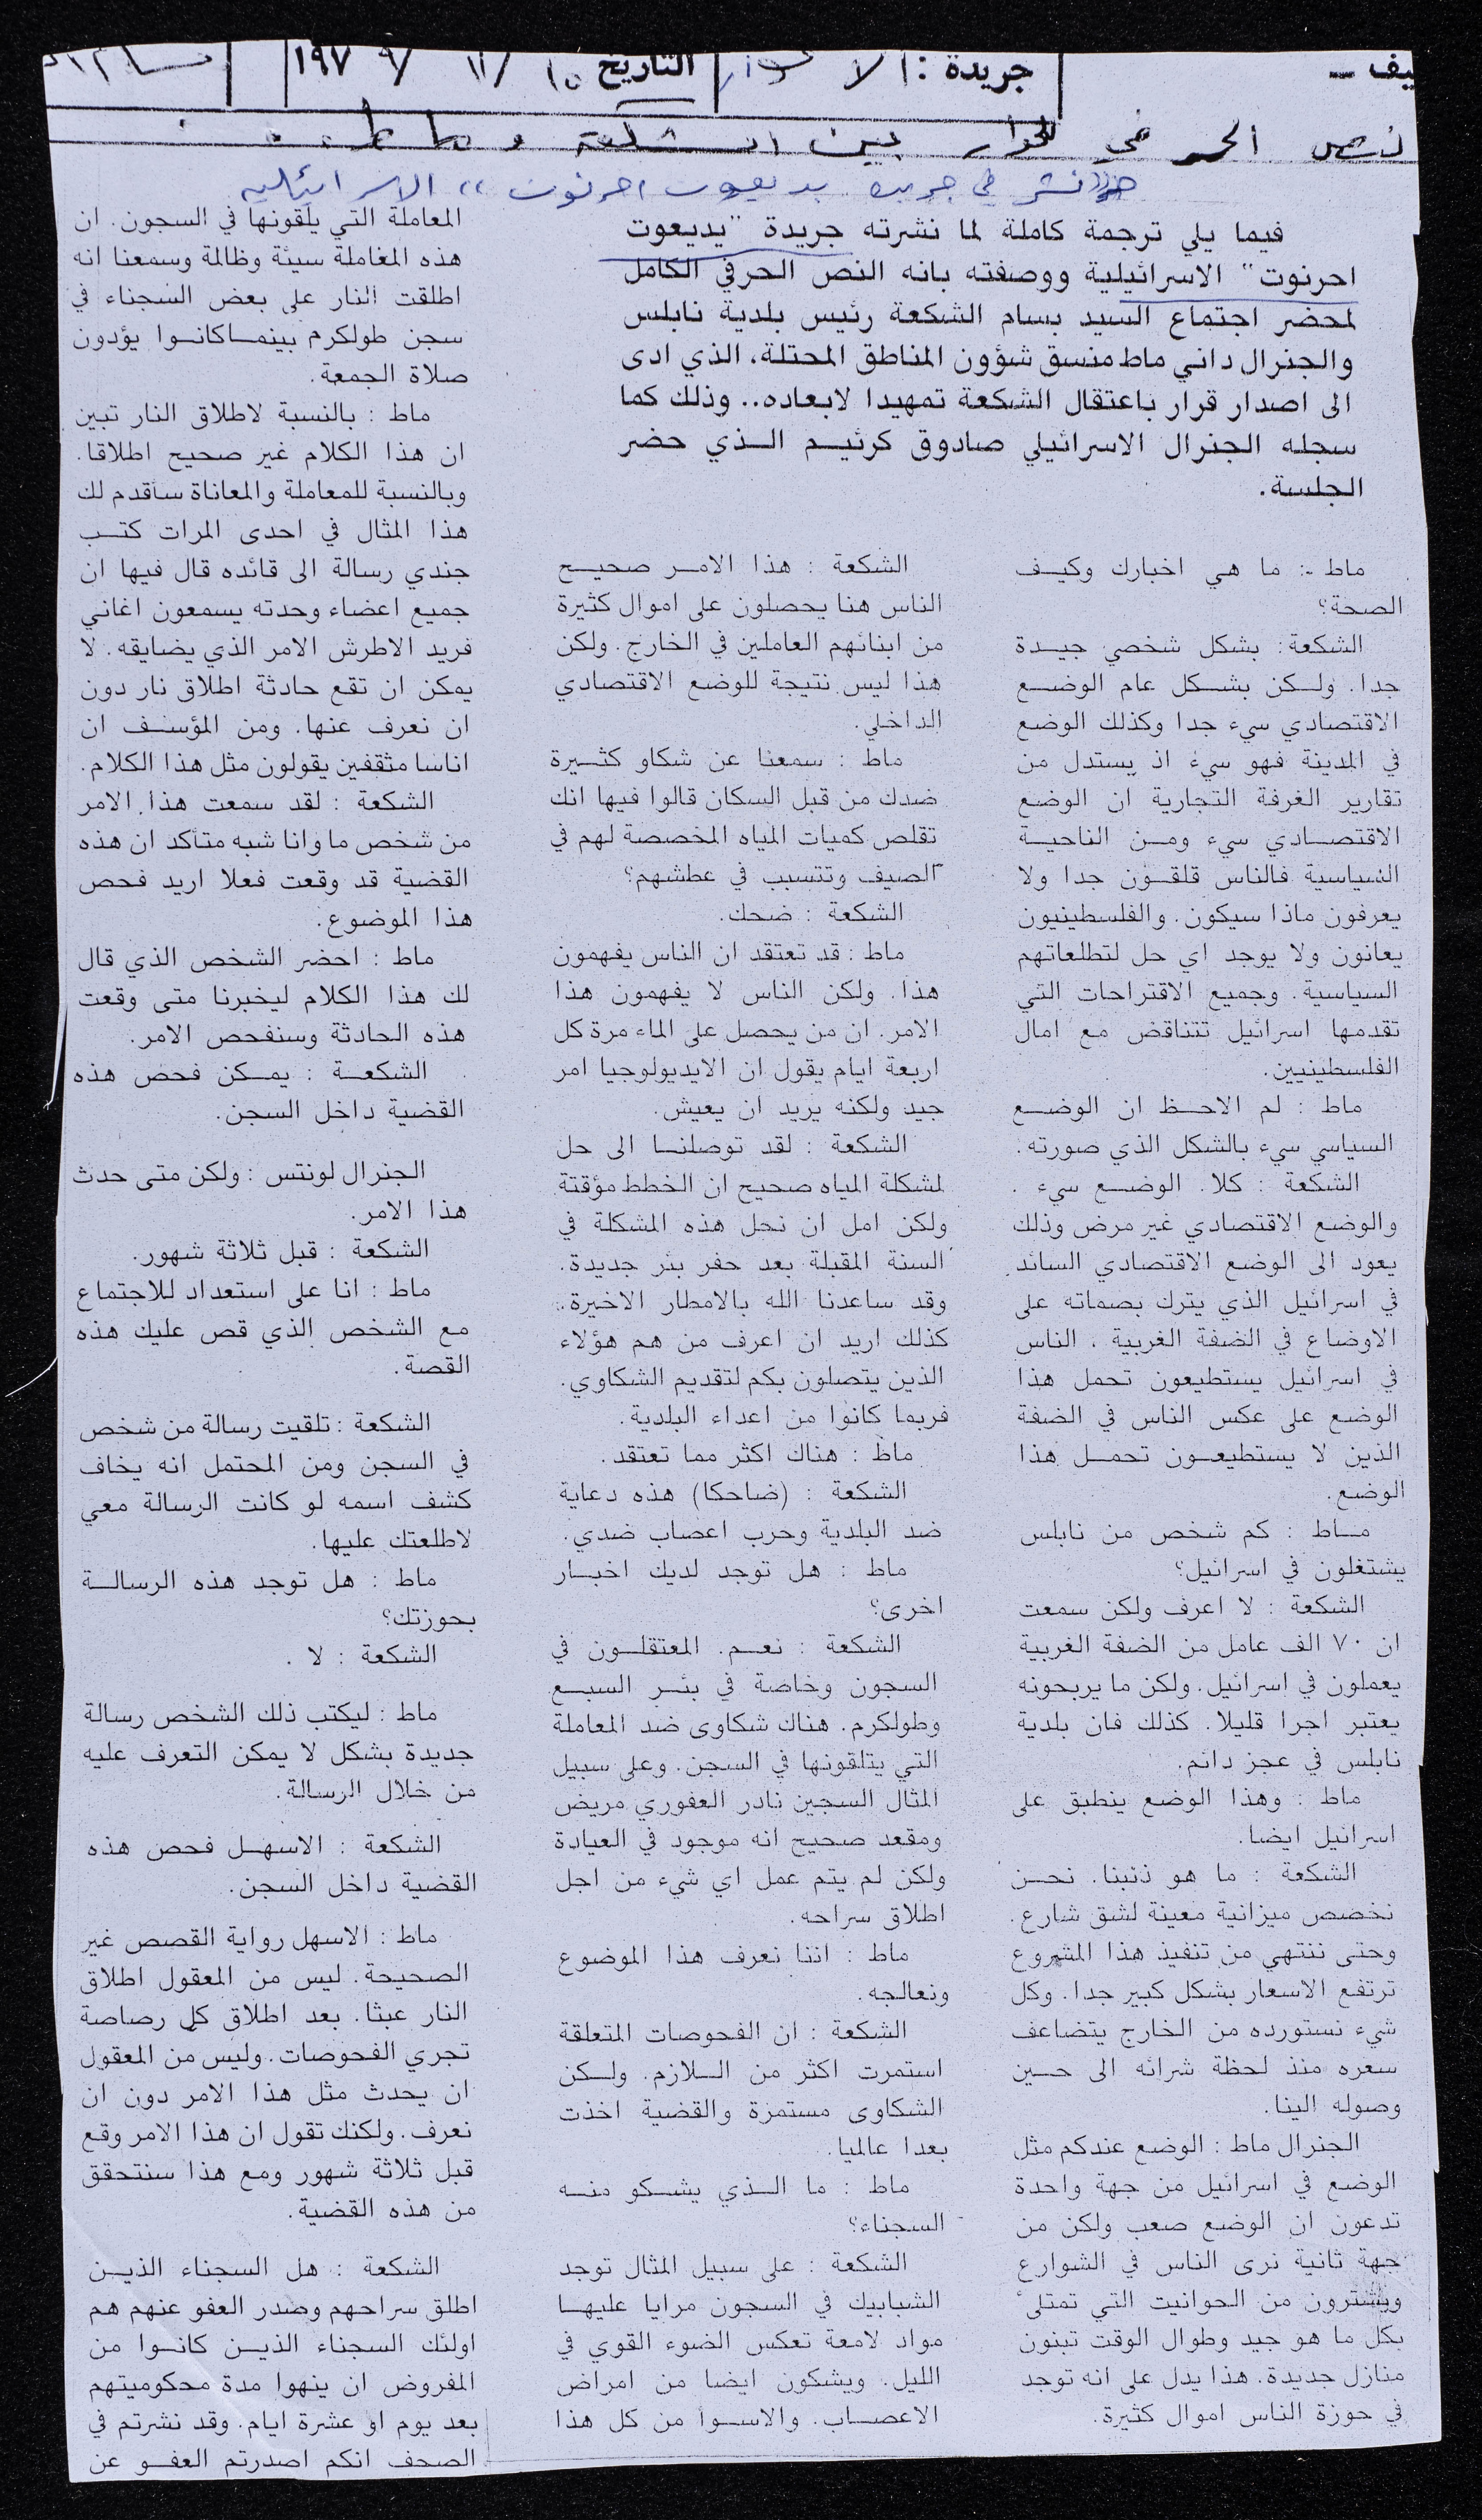 يف -
جريدة :
التاريخ ١٥ / ١١ / ١٩٧٩
نص الحرفي للحوار بين الشكعة وماط
نشر في جريدة يديعوت احرنوت " الاسرائيلية
فيما يلي ترجمة كاملة لما نشرته جريدة "يديعوت
احرنوت" الاسرائيلية ووصفته بانه النص الحرفي الكامل
لمحضر اجتماع السيد بسام الشكعة رئيس بلدية نابلس
والجنرال داني ماط منسق شؤون المناطق المحتلة، الذي ادى
الى اصدار قرار باعتقال الشكعة تمهيدا لابعاده.. وذلك كما
سجله الجنرال الاسرائيلي صادوق كرئيم الذي حضر
الجلسة.
ماط : ما هي اخبارك وكيف
الصحة؟
الشكعة: بشكل شخصي جيدة
جدا. ولكن بشكل عام الوضع
الاقتصادي سيء جدا وكذلك الوضع
في المدينة فهو سيء اذ يستدل من
تقارير الغرفة التجارية ان الوضع
الاقتصادي سيء ومن الناحية
السياسية فالناس قلقون جدا ولا
يعرفون ماذا سيكون. والفلسطينيون
يعانون ولا يوجد اي حل لتطلعاتهم
السياسية. وجميع الاقتراحات التي
تقدمها اسرائيل تتناقض مع امال
الفلسطينيين.
ماط : لم الاحظ ان الوضع
السياسي سيء بالشكل الذي صورته.
الشكعة : كلا. الوضع سيء .
والوضع الاقتصادي غير مرض وذلك
يعود الى الوضع الاقتصادي السائد
في اسرائيل الذي يترك بصماته على
الاوضاع في الضفة الغربية ، الناس
في اسرائيل يستطيعون تحمل هذا
الوضع على عكس الناس في الضفة
الذين لا يستطيعون تحمل هذا
الوضع.
ماط : كم شخص من نابلس
يشتغلون في اسرائيل؟
الشكعة : لا اعرف ولكن سمعت
ان ٧٠ الف عامل من الضفة الغربية
يعملون في اسرائيل. ولكن ما يربحونه
يعتبر اجرا قليلا. كذلك فان بلدية
نابلس في عجز دائم.
ماط : وهذا الوضع ينطبق على
اسرائيل ايضا.
الشكعة : ما هو ذنبنا. نحن
نخصص ميزانية معينة لشق شارع.
وحتى ننتهي من تنفيذ هذا المشروع
ترتفع الاسعار بشكل كبير جدا. وكل
شيء نستورده من الخارج يتضاعف
سعره منذ لحظة شرائه الى حين
وصوله الينا.
الجنرال ماط : الوضع عندكم مثل
الوضع في اسرائيل من جهة واحدة
تدعون ان الوضع صعب ولكن من
جهة ثانية نرى الناس في الشوارع
ويشترون من الحوانيت التي تمتلئ
بكل ما هو جيد وطوال الوقت تبنون
منازل جديدة. هذا يدل على انه توجد
في حوزة الناس اموال كثيرة.
الشكعة : هذا الامر صحيح
الناس هنا يحصلون على اموال كثيرة
من ابنائهم العاملين في الخارج. ولكن
هذا ليس نتيجة للوضع الاقتصادي
الداخلي.
ماط : سمعنا عن شكاو كثيرة
ضدك من قبل السكان قالوا فيها انك
تقلص كميات المياه المخصصة لهم في
الصيف وتتسبب في عطشهم؟
الشكعة : ضحك.
ماط : قد تعتقد ان الناس يفهمون
هذا. ولكن الناس لا يفهمون هذا
الامر. ان من يحصل على الماء مرة كل
اربعة ايام يقول ان الايديولوجيا امر
جيد ولكنه يريد ان يعيش.
الشكعة : لقد توصلنا الى حل
لمشكلة المياه صحيح ان الخطط مؤقتة
ولكن امل ان نحل هذه المشكلة في
السنة المقبلة بعد حفر بئر جديدة.
وقد ساعدنا الله بالامطار الاخيرة.
كذلك اريد ان اعرف من هم هؤلاء
الذين يتصلون بكم لتقديم الشكاوي.
فربما كانوا من اعداء البلدية.
ماط : هناك اكثر مما تعتقد.
الشكعة : (ضاحكا) هذه دعاية
ضد البلدية وحرب اعصاب ضدي.
ماط : هل توجد لديك اخبار
اخرى؟
الشكعة : نعم. المعتقلون في
السجون وخاصة في بئر السبع
وطولكرم. هناك شكاوى ضد المعاملة
التي يتلقونها في السجن. وعلى سبيل
المثال السجين نادر العفوري مريض
ومقعد صحيح انه موجود في العيادة
ولكن لم يتم عمل اي شيء من اجل
اطلاق سراحه.
ماط : اننا نعرف هذا الموضوع
ونعالجه.
الشكعة : ان الفحوصات المتعلقة
استمرت اكثر من اللازم. ولكن
الشكاوى مستمرة والقضية اخذت
بعدا عالميا.
ماط : ما الذي يشكو منه
السجناء؟
الشكعة : على سبيل المثال توجد
الشبابيك في السجون مرايا عليها
مواد لامعة تعكس الضوء القوي في
الليل. ويشكون ايضا من امراض
الاعصاب. والاسوأ من كل هذا
المعاملة التي يلقونها في السجون. ان
هذه المعاملة سيئة وظالمة وسمعنا انه
اطلقت النار على بعض السجناء في
سجن طولكرم بينما كانوا يؤدون
صلاة الجمعة.
ماط : بالنسبة لاطلاق النار تبين
ان هذا الكلام غير صحيح اطلاقا.
وبالنسبة للمعاملة والمعاناة سأقدم لك
هذا المثال في احدى المرات كتب
جندي رسالة الى قائده قال فيها ان
جميع اعضاء وحدته يسمعون اغاني
فريد الاطرش الامر الذي يضايقه. لا
يمكن ان تقع حادثة اطلاق نار دون
ان نعرف عنها. ومن المؤسف ان
اناسا مثقفين يقولون مثل هذا الكلام.
الشكعة : لقد سمعت هذا الامر
من شخص ما وانا شبه متأكد ان هذه
القضية قد وقعت فعلا اريد فحص
هذا الموضوع.
ماط : احضر الشخص الذي قال
لك هذا الكلام ليخبرنا متى وقعت
هذه الحادثة وسنفحص الامر.
الشكعة : يمكن فحص هذه
القضية داخل السجن.
الجنرال لونتس : ولكن متى حدث
هذا الامر.
الشكعة : قبل ثلاثة شهور.
ماط : انا على استعداد للاجتماع
مع الشخص الذي قص عليك هذه
القصة.
الشكعة : تلقيت رسالة من شخص
في السجن ومن المحتمل انه يخاف
كشف اسمه لو كانت الرسالة معي
لاطلعتك عليها.
ماط : هل توجد هذه الرسالة
بحوزتك؟
الشكعة : لا .
ماط : ليكتب ذلك الشخص رسالة
جديدة بشكل لا يمكن التعرف عليه
من خلال الرسالة.
الشكعة : الاسهل فحص هذه
القضية داخل السجن.
ماط : الاسهل رواية القصص غير
الصحيحة. ليس من المعقول اطلاق
النار عبثا. بعد اطلاق كل رصاصة
تجري الفحوصات. وليس من المعقول
ان يحدث مثل هذا الامر دون ان
نعرف. ولكنك تقول ان هذا الامر وقع
قبل ثلاثة شهور ومع هذا سنتحقق
من هذه القضية.
الشكعة : هل السجناء الذين
اطلق سراحهم وصدر العفو عنهم هم
اولئك السجناء الذين كانوا من
المفروض ان ينهوا مدة محكوميتهم
بعد يوم او عشرة ايام. وقد نشرتم في
الصحف انكم اصدرتم العفو عن